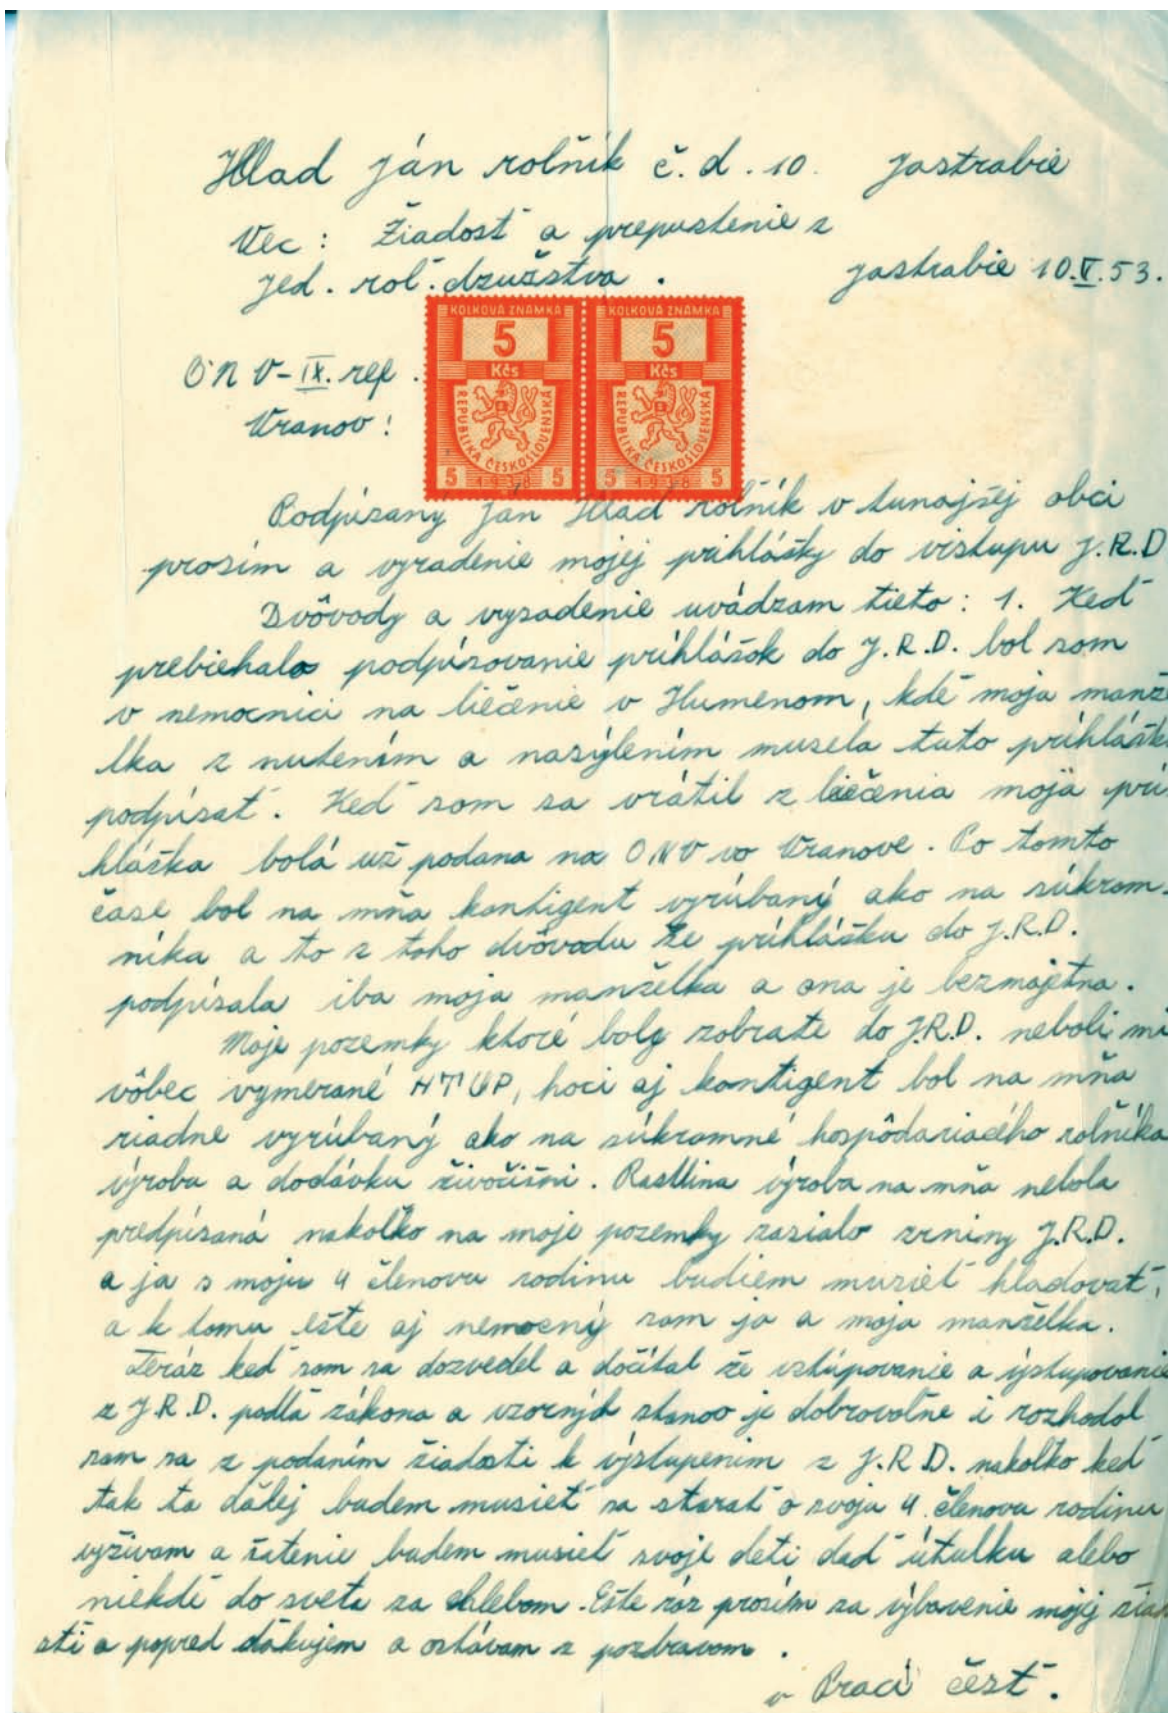 Hlad Ján rolňík č. d. 10. Jastrabie
Vec: Žiadosť a prepustenie z
Jed. roľ. družstva. Jastrabie 10.V.53.
KOLKOVÁ ZNÁMKA KOLKOVÁ ZNÁMKA
5 5
Kčs Kčs
REPUBLIKA ČESKOSLOVENSKÁ REPUBLIKA ČESKOSLOVENSKÁ
5 5 5 5
ONV-IX. ref.
Vranov:
Podpísaný Ján Hlad rolňík v tunajšej obci
prosím a vyradenie mojej prihlášky do vistupu J.R.D
Dvôvody a vysadenie uvádzam tieto: 1. Keď
prebiehalo podpísovanie príhlášok do J.R.D. bol som
v nemocnici na liečenie v Humenom, kďe moja manže
lka z nutením a nasýlením musela tuto príhlášk
podpísať. Keď som sa vrátil z liečenia moja prí
hláška bolá už podana na ONV vo Vranove. Po tomto
čase bol na mňa kontigent vyrúbaný ako na súkrom-
níka a to z toho dvôvodu že príhlášku do J.R.D.
podpísala iba moja manželka a ona je bezmajetna.
Moje pozemky ktoré boly zobrate do J.R.D. neboli mi
vôbec vymerané HTUP, hoci aj kontigent bol na mňa
riadne vyrúbaný ako na súkromné hospôdariacého rolňíka
výrobu a dodávku živočišni. Rastlina výroba na mňa nebola
predpísaná nakoľko na moje pozemky zasialo zrniny J.R.D.
a ja s moju 4 členovu rodinu budiem musieť hladovať,
a k tomu ešte aj nemocný som ja a moja manželka.
Teráz keď som sa dozvedel a dočítal že vstúpovanie a výstupovanie
z J.R.D. podľa zákona a vzorných stanov je dobrovoľne i rozhodol
som sa z podaním žiadosti k výstupením z J.R.D. nakoľko keď
tak to ďálej budem musieť sa starať o svoju 4. členovu rodinu
výživam a šatenie budem musieť svoje deti dať útulku alebo
niekďe do sveta za chlebom. Ešte ráz prosím za výbavenie mojej žiad
sti a popred ďákujem a ostávam z pozdravom.
v Prací česť.